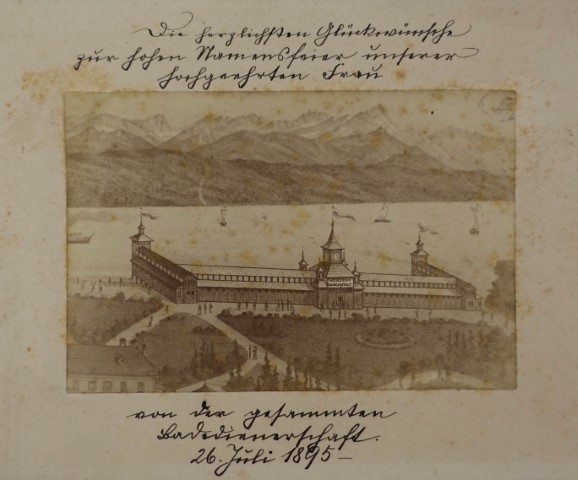 Die herzlichsten Glückwünsche
zur hohen Namensfeier unserer
hochgeehrten Frau
von der gesammten
Badedienerschaft.
26. Juli 1895 –